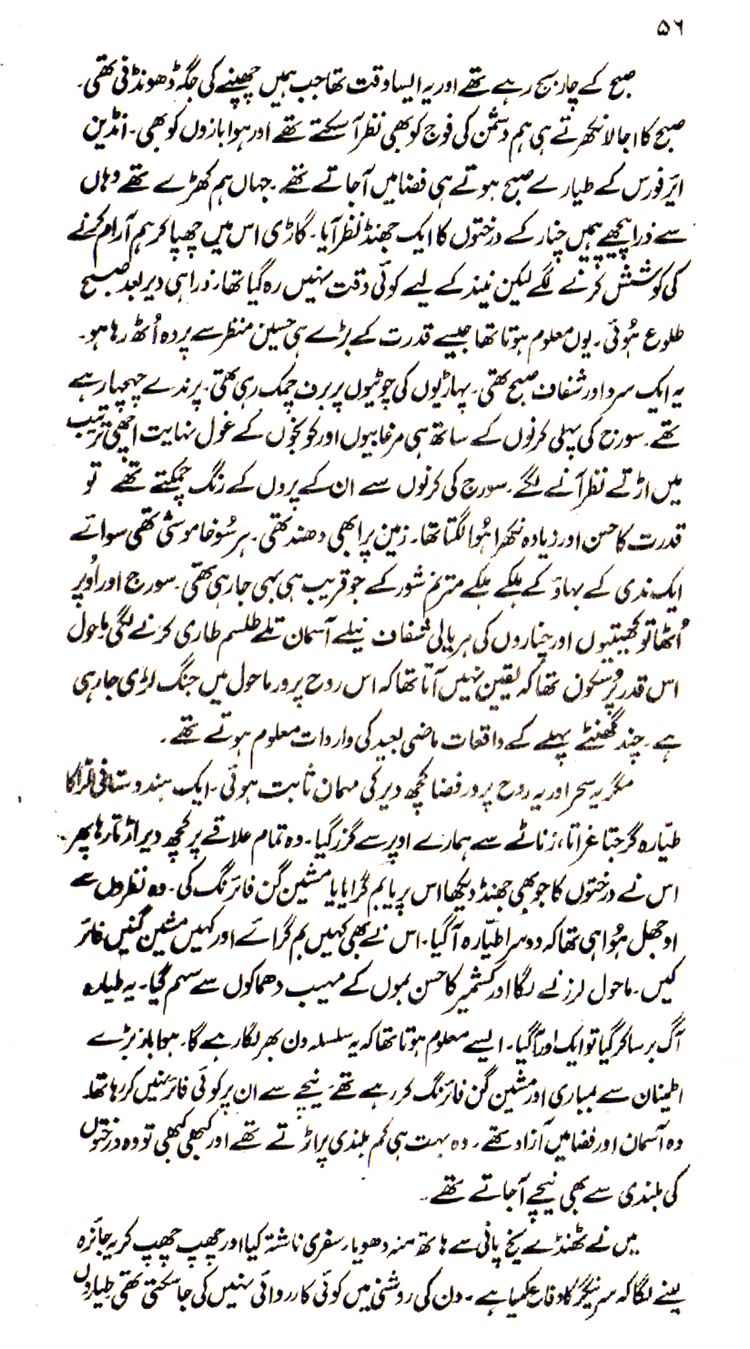 ۵۶
صبح کے چار بج رہے تھے اور یہ ایسا وقت تھا جب ہمیں چھپنے کی جگہ ڈھونڈنی تھی۔
صبح کا اجالا نکھرتے ہی ہم دشمن کی فوج کو بھی نظر آ سکتے تھے اور ہوا بازوں کو بھی۔ انڈین
ائیر فورس کے طیارے صبح ہوتے ہی فضا میں آ جاتے تھے۔ جہاں ہم کھڑے تھے وہاں
سے ذرا پیچھے ہمیں چنار کے درختوں کا ایک جھنڈ نظر آیا۔ گاڑی اس میں چھپا کر ہم آرام کرنے
کی کوشش کرنے لگے لیکن نیند کے لیے کوئی وقت نہیں رہ گیا تھا، ذرا ہی دیر بعد صبح
طلوع ہُوئی۔ یوں معلوم ہوتا تھا جیسے قدرت کے بڑے ہی حسین منظر سے پردہ اُٹھ رہا ہو۔
یہ ایک سرد اور شفاف صبح تھی۔ پہاڑیوں کی چوٹیوں پر برف چمک رہی تھی۔ پرندے چہچہا رہے
تھے۔ سورج کی پہلی کرنوں کے ساتھ ہی مرغابیوں اور کونجوں کے غول نہایت اچھی ترتیب
میں اڑتے نظر آنے لگے۔ سورج کی کرنوں سے ان کے پروں کے رنگ چمکتے تھے تو
قدرت کا حسن اور زیادہ نکھرا ہُوا لگتا تھا۔ زمین پر ابھی دھند تھی۔ ہر سُو خاموشی تھی سوائے
ایک ندی کے بہاؤ کے ہلکے ہلکے مترنم شور کے جو قریب ہی بہی جا رہی تھی۔ سورج اور اُوپر
اُٹھا تو کھیتیوں اور چناروں کی ہریالی شفاف نیلے آسمان تلے طلسم طاری کرنے لگی۔ ماحول
اس قدر پُرسکون تھا کہ یقین نہیں آتا تھا کہ اس روح پرور ماحول میں جنگ لڑی جا رہی
ہے۔ چند گھنٹے پہلے کے واقعات ماضی بعید کی واردات معلوم ہوتے تھے۔
مگر یہ سحر اور یہ روح پرور فضا کچھ دیر کی مہمان ثابت ہوئی۔ ایک ہندوستانی لڑاکا
طیّارہ گرجتا غراتا، زناٹے سے ہمارے اوپر سے گزر گیا۔ وہ تمام علاقے پر کچھ دیر اڑتا رہا پھر
اس نے درختوں کا جو بھی جھنڈ دیکھا اس پر یا بم گرایا یا مشین گن فائرنگ کی۔ وہ نظروں سے
اوجھل ہُوا ہی تھا کہ دوسرا طیّارہ آ گیا۔ اس نے بھی کہیں بم گرائے اور کہیں مشین گنیں فائر
کیں۔ ماحول لرزنے لگا اور کشمیر کا حسن بموں کے مہیب دھماکوں سے سہم گیا۔ یہ طیارہ
آگ برسا کر گیا تو ایک اور آ گیا۔ ایسے معلوم ہوتا تھا کہ یہ سلسلہ دن بھر لگا رہے گا۔ ہوا باز بڑے
اطمینان سے بمباری اور مشین گن فائرنگ کر رہے تھے، نیچے سے ان پر کوئی فائر نہیں کر رہا تھا۔
وہ آسمان اور فضا میں آزاد تھے۔ وہ بہت ہی کم بلندی پر اڑتے تھے اور کبھی کبھی تو وہ درختوں
کی بلندی سے بھی نیچے آ جاتے تھے۔
میں نے ٹھنڈے یخ پانی سے ہاتھ منہ دھویا، سفری ناشتہ کیا اور چھپ چھپ کر یہ جائزہ
لینے لگا کہ سرینگر کا دفاع کیسا ہے۔ دن کی روشنی میں کوئی کارروائی نہیں کی جا سکتی تھی طیاروں